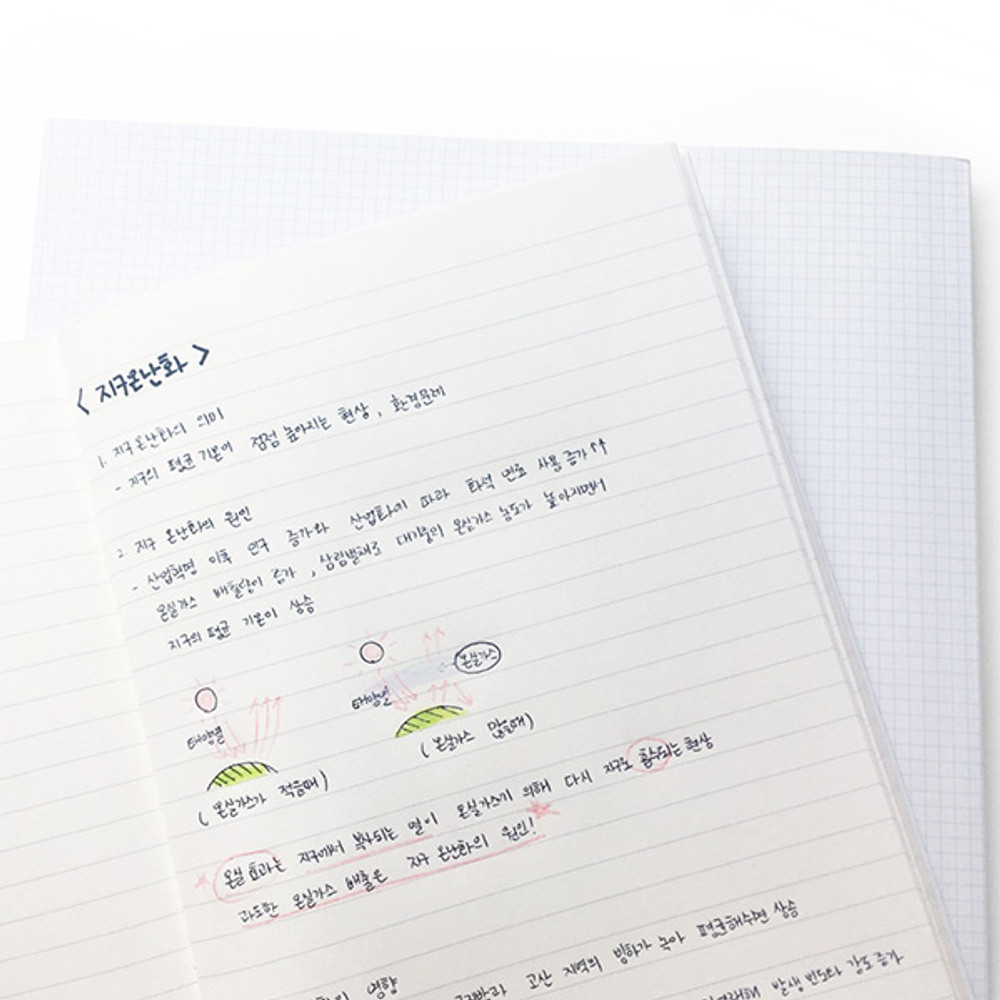 < 지구온난화 >
1. 지구온난화의 의미
- 지구의 평균기온이 점점 높아지는 현상, 환경문제
2. 지구 온난화의 원인
- 산업혁명 이후 인구 증가와 산업화에 따라 화석 연료 사용 증가↑↑
온실가스 배출량이 증가, 삼림벌채로 대기중의 온실가스 농도가 높아지면서
지구의 평균 기온이 상승
온실가스
태양열
태양열
( 온실가스 많을때 )
( 온실가스가 적을때 )
온실효과는 지구에서 복사되는 열이 온실가스에 의해 다시 지구로 흡수되는 현상
과도한 온실가스 배출은 지구 온난화의 원인!
영향
고산 지역의 빙하가 녹아 평균해수면 상승
발생 빈도와 강도 증가